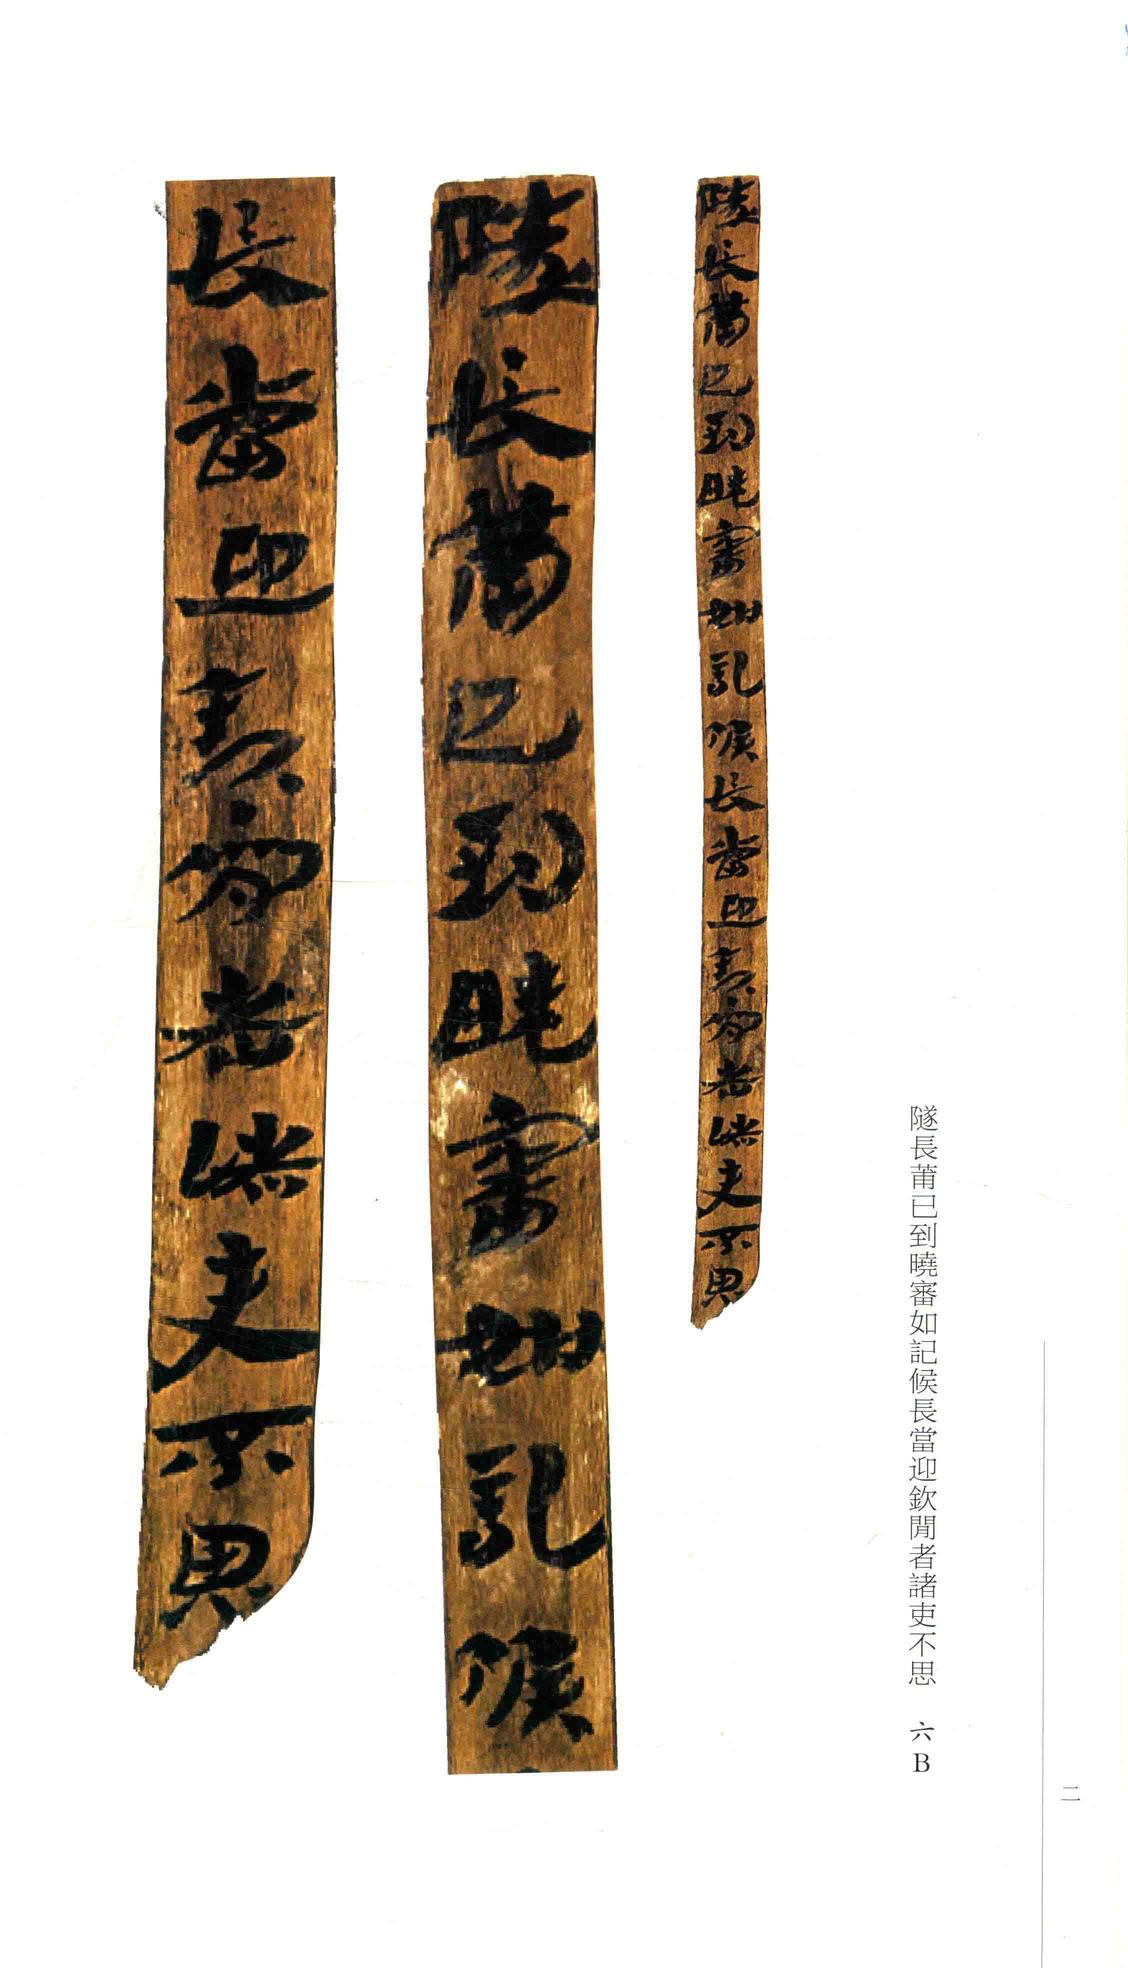 隧長莆已到曉審如記候長當迎欽閒者諸吏不思　六B
二
隧長莆已到曉審如記候長當迎欽閒者諸吏不思
隧長莆已到曉審如記候
長當迎欽閒者諸吏不思